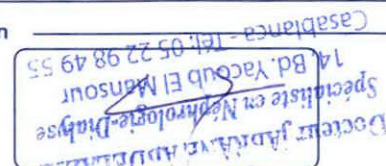 Spécialiste en Néphrologie-Dialyse
14, Bd. Yacoub El Mansour
Casablanca - Tél: 05 22 98 49 55
n